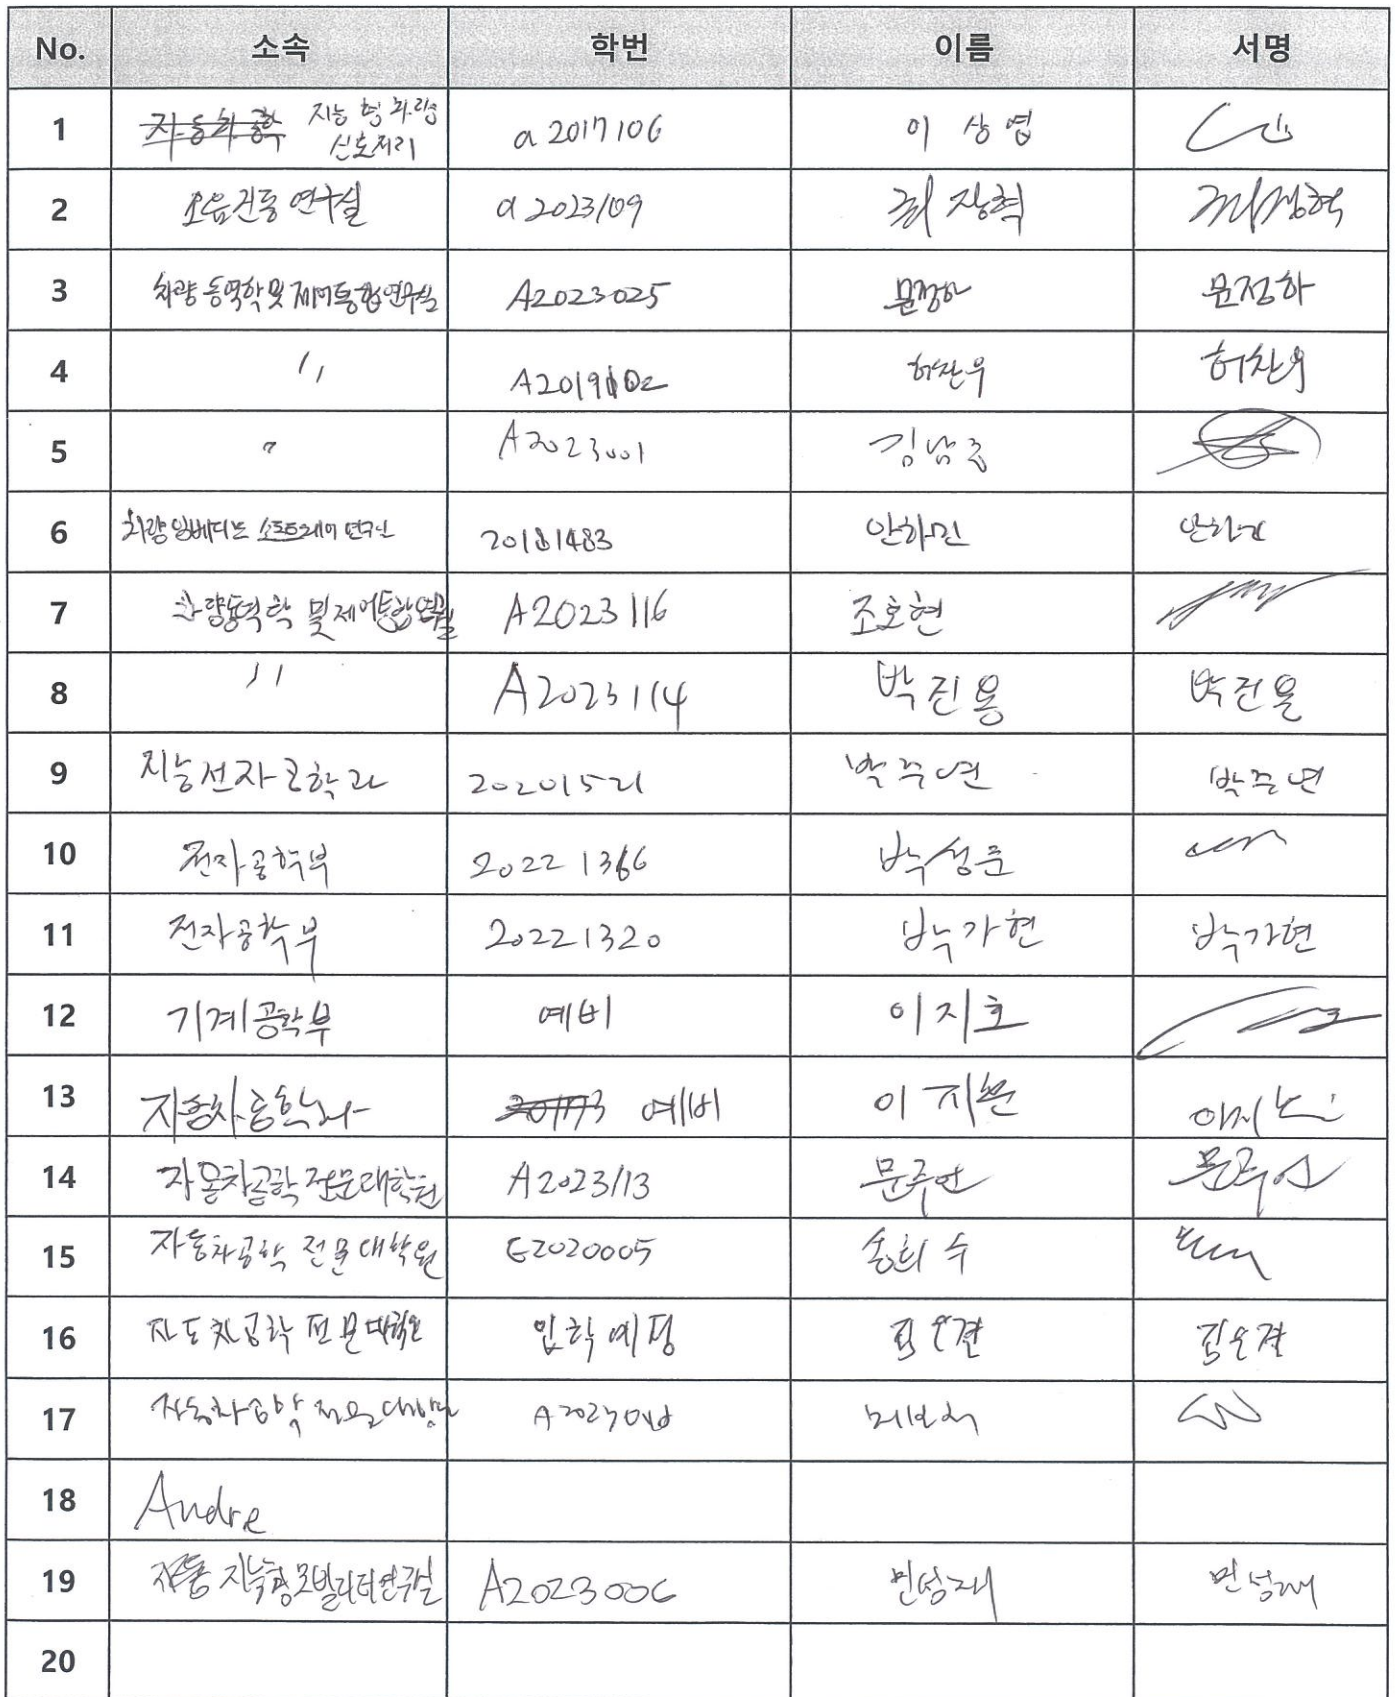 No. 소속 학번 이름 서명
1 자동차공학 지능형차량 신호처리 a2017106 이상영
2 소음진동 연구실 a2023109 최장혁 최장혁
3 차량동역학및제어통합연구실 A2023025 문정하 문정하
4 〃 A2019102 허찬우 허찬우
5 〃 A2023001
6 차량임베디드 소프트웨어 연구실 20181483 안하민 안하민
7 차량동역학 및 제어통합연구실 A2023116 조호현
8 〃 A2023114 박진용 박진용
9 지능전자공학과 20201521 박주연 박주연
10 전자공학부 20221366 박성준
11 전자공학부 20221320 박가현 박가현
12 기계공학부 예비 이지호
13 자동차공학과 예비 이지뽄
14 자동차공학전문대학원 A2023113 문주안
15 자동차공학 전문대학원 E2020005 송희수
16 자동차공학 전문대학원 입학예정
17 자동차공학 전문대학원
18 Andre
19 지능형모빌리티연구실 A2023006 민성재 민성재
20